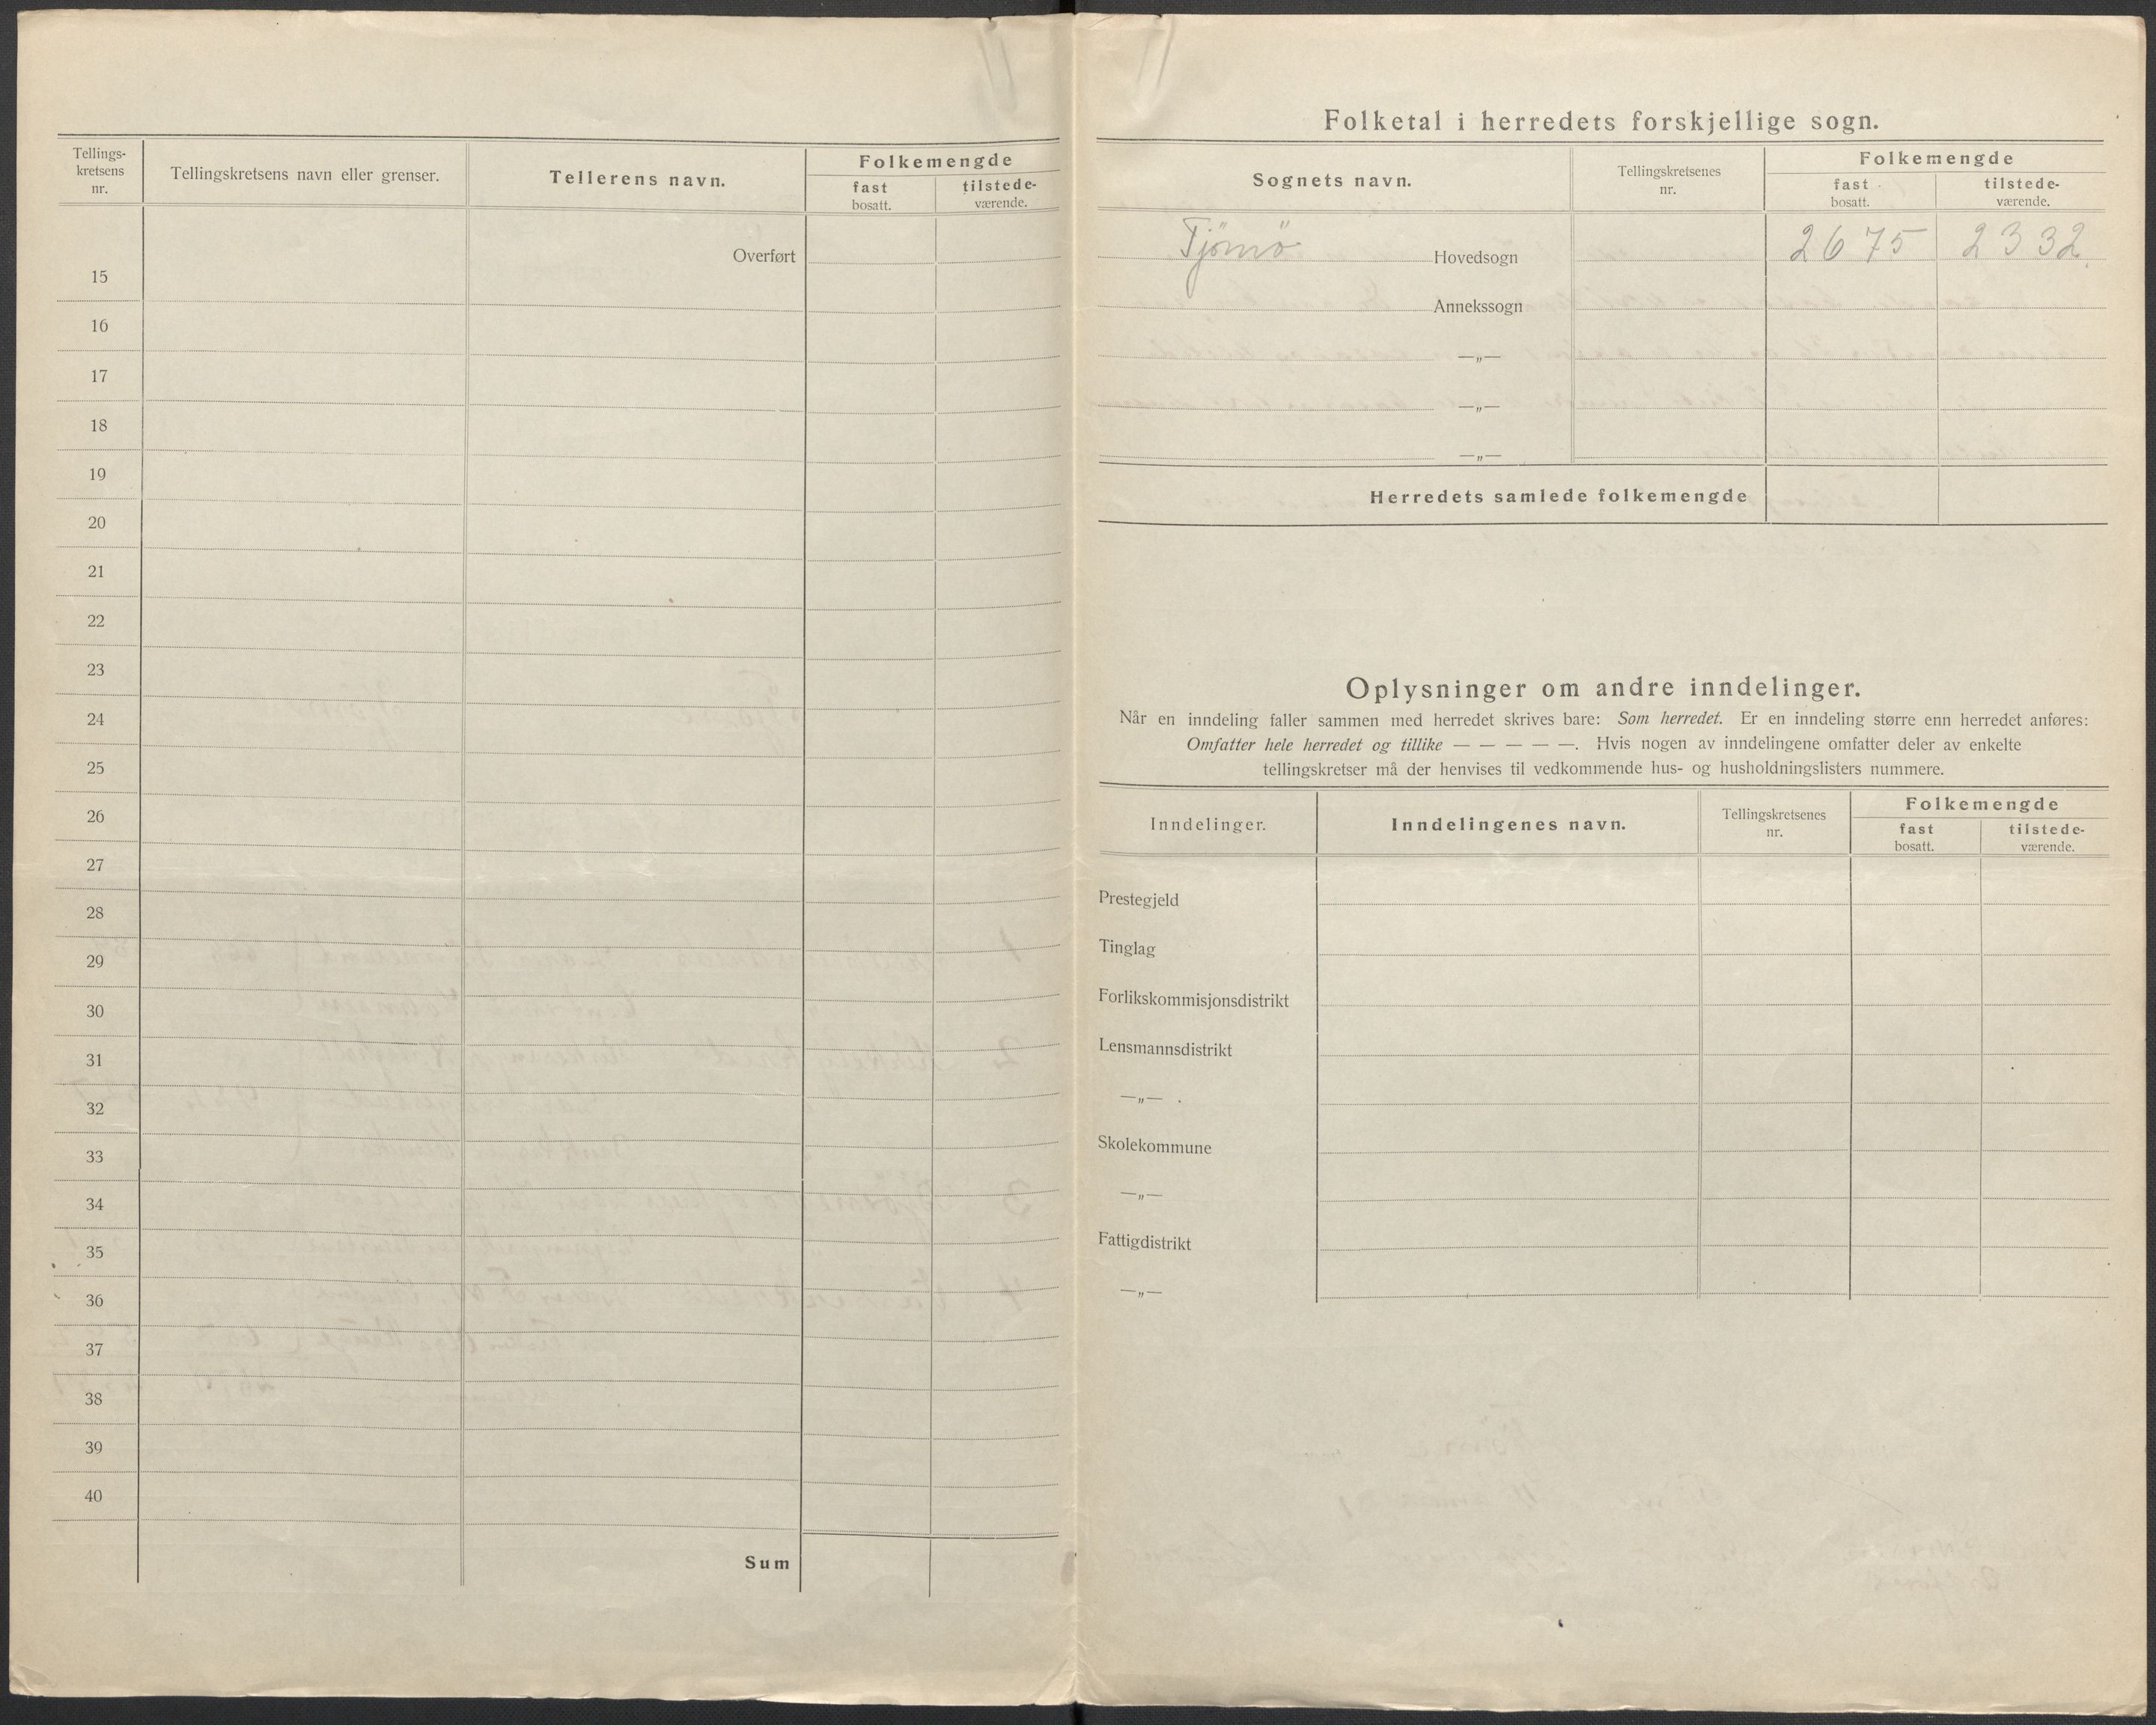 Tellings-
kretsens
nr.
Tellingskretsens navn eller grenser.
Tellerens navn.
Folkemengde
fast
bosatt.
tilstede-
værende.
Overført
15
16
17
18
19
20
21
22
23
24
25
26
27
28
29
30
31
32
33
34
35
36
37
38
39
40
Sum
Folketal i herredets forskjellige sogn.
Sognets navn.
Tellingskretsenes
nr.
Folkemengde
fast
bosatt.
tilstede-
værende.
Tjömö Hovedsogn 2675 2332
Annekssogn
—„—
—„—
—„—
Herredets samlede folkemengde
Oplysninger om andre inndelinger.
Når en inndeling faller sammen med herredet skrives bare: Som herredet. Er en inndeling større enn herredet anføres:
Omfatter hele herredet og tillike — — — — —. Hvis nogen av inndelingene omfatter deler av enkelte
tellingskretser må der henvises til vedkommende hus- og husholdningslisters nummere.
Inndelinger.
Inndelingenes navn.
Tellingskretsenes
nr.
Folkemengde
fast
bosatt.
tilstede-
værende.
Prestegjeld
Tinglag
Forlikskommisjonsdistrikt
Lensmannsdistrikt
—„—
Skolekommune
—„—
Fattigdistrikt
—„—